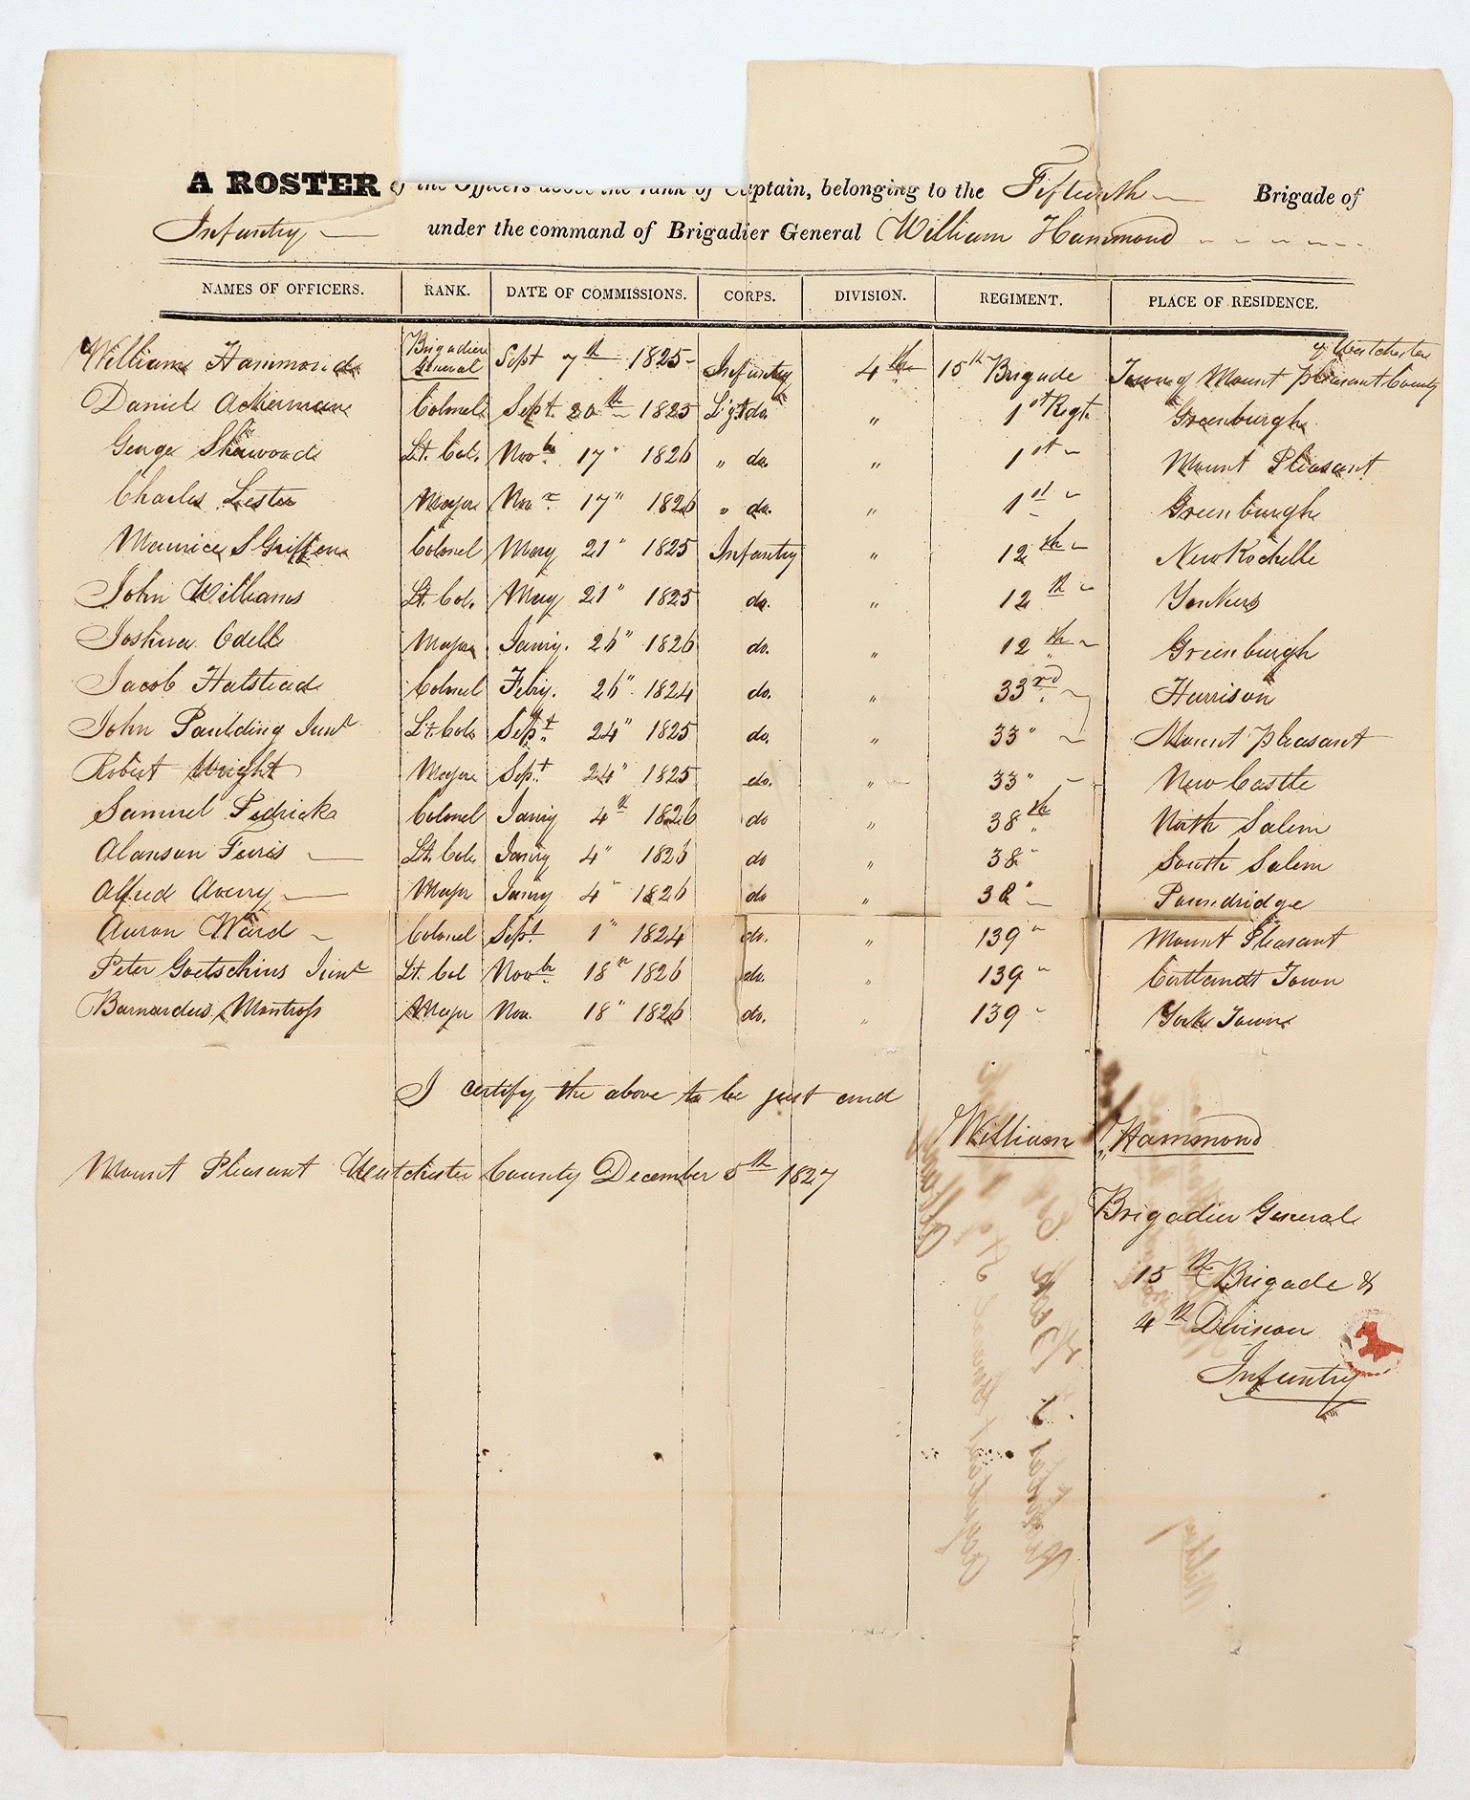 A ROSTER of the Officers above the rank of Captain, belonging to the Fifteenth Brigade of
Infantry under the command of Brigadier General William Hammond
NAMES OF OFFICERS. RANK. DATE OF COMMISSIONS. CORPS. DIVISION. REGIMENT. PLACE OF RESIDENCE.
William Hammond Brigadier General Sept 7th 1825 Infantry 4th 15th Brigade Town of Mount Pleasant County of Westchester
Daniel Ackerman Colonel Sept. 20th 1825 Ligt do " 1st Regt. Greenburgh
George Sherwood Lt. Col. Novbr. 17" 1826 " do. " 1st Mount Pleasant
Charles Lester Major Nov. 17" 1826 " do. " 1st Greenburgh
Maurice S Griffen Colonel May 21" 1825 Infantry " 12th New Rochelle
John Williams Lt. Col. May 21" 1825 do. " 12th Yonkers
Joshua Odell Major Janry. 26" 1826 do. " 12th Greenburgh
Jacob Halstead Colonel Febry. 26" 1824 do. " 33rd Harrison
John Paulding Junr Lt. Col. Sept. 24" 1825 do. " 33" Mount Pleasant
Robert Wright Major Sept. 24" 1825 do. " 33" New Castle
Samuel Pedrick Colonel Janry 4th 1826 do " 38th North Salem
Alanson Ferris Lt. Col. Janry 4" 1826 do " 38" South Salem
Alfred Avery Major Janry 4" 1826 do " 38" Poundridge
Aaron Ward Colonel Sept. 1" 1824 do. " 139" Mount Pleasant
Peter Goetschius Junr Lt. Col Novbr. 18" 1826 do. " 139" Cortlandt Town
Barnardus Montross Major Nov. 18" 1826 do. " 139" York Town
I certify the above to be just and
William Hammond
Mount Pleasant Westchester County December 5th 1827
Brigadier General
15th Brigade &
4th Division
Infantry